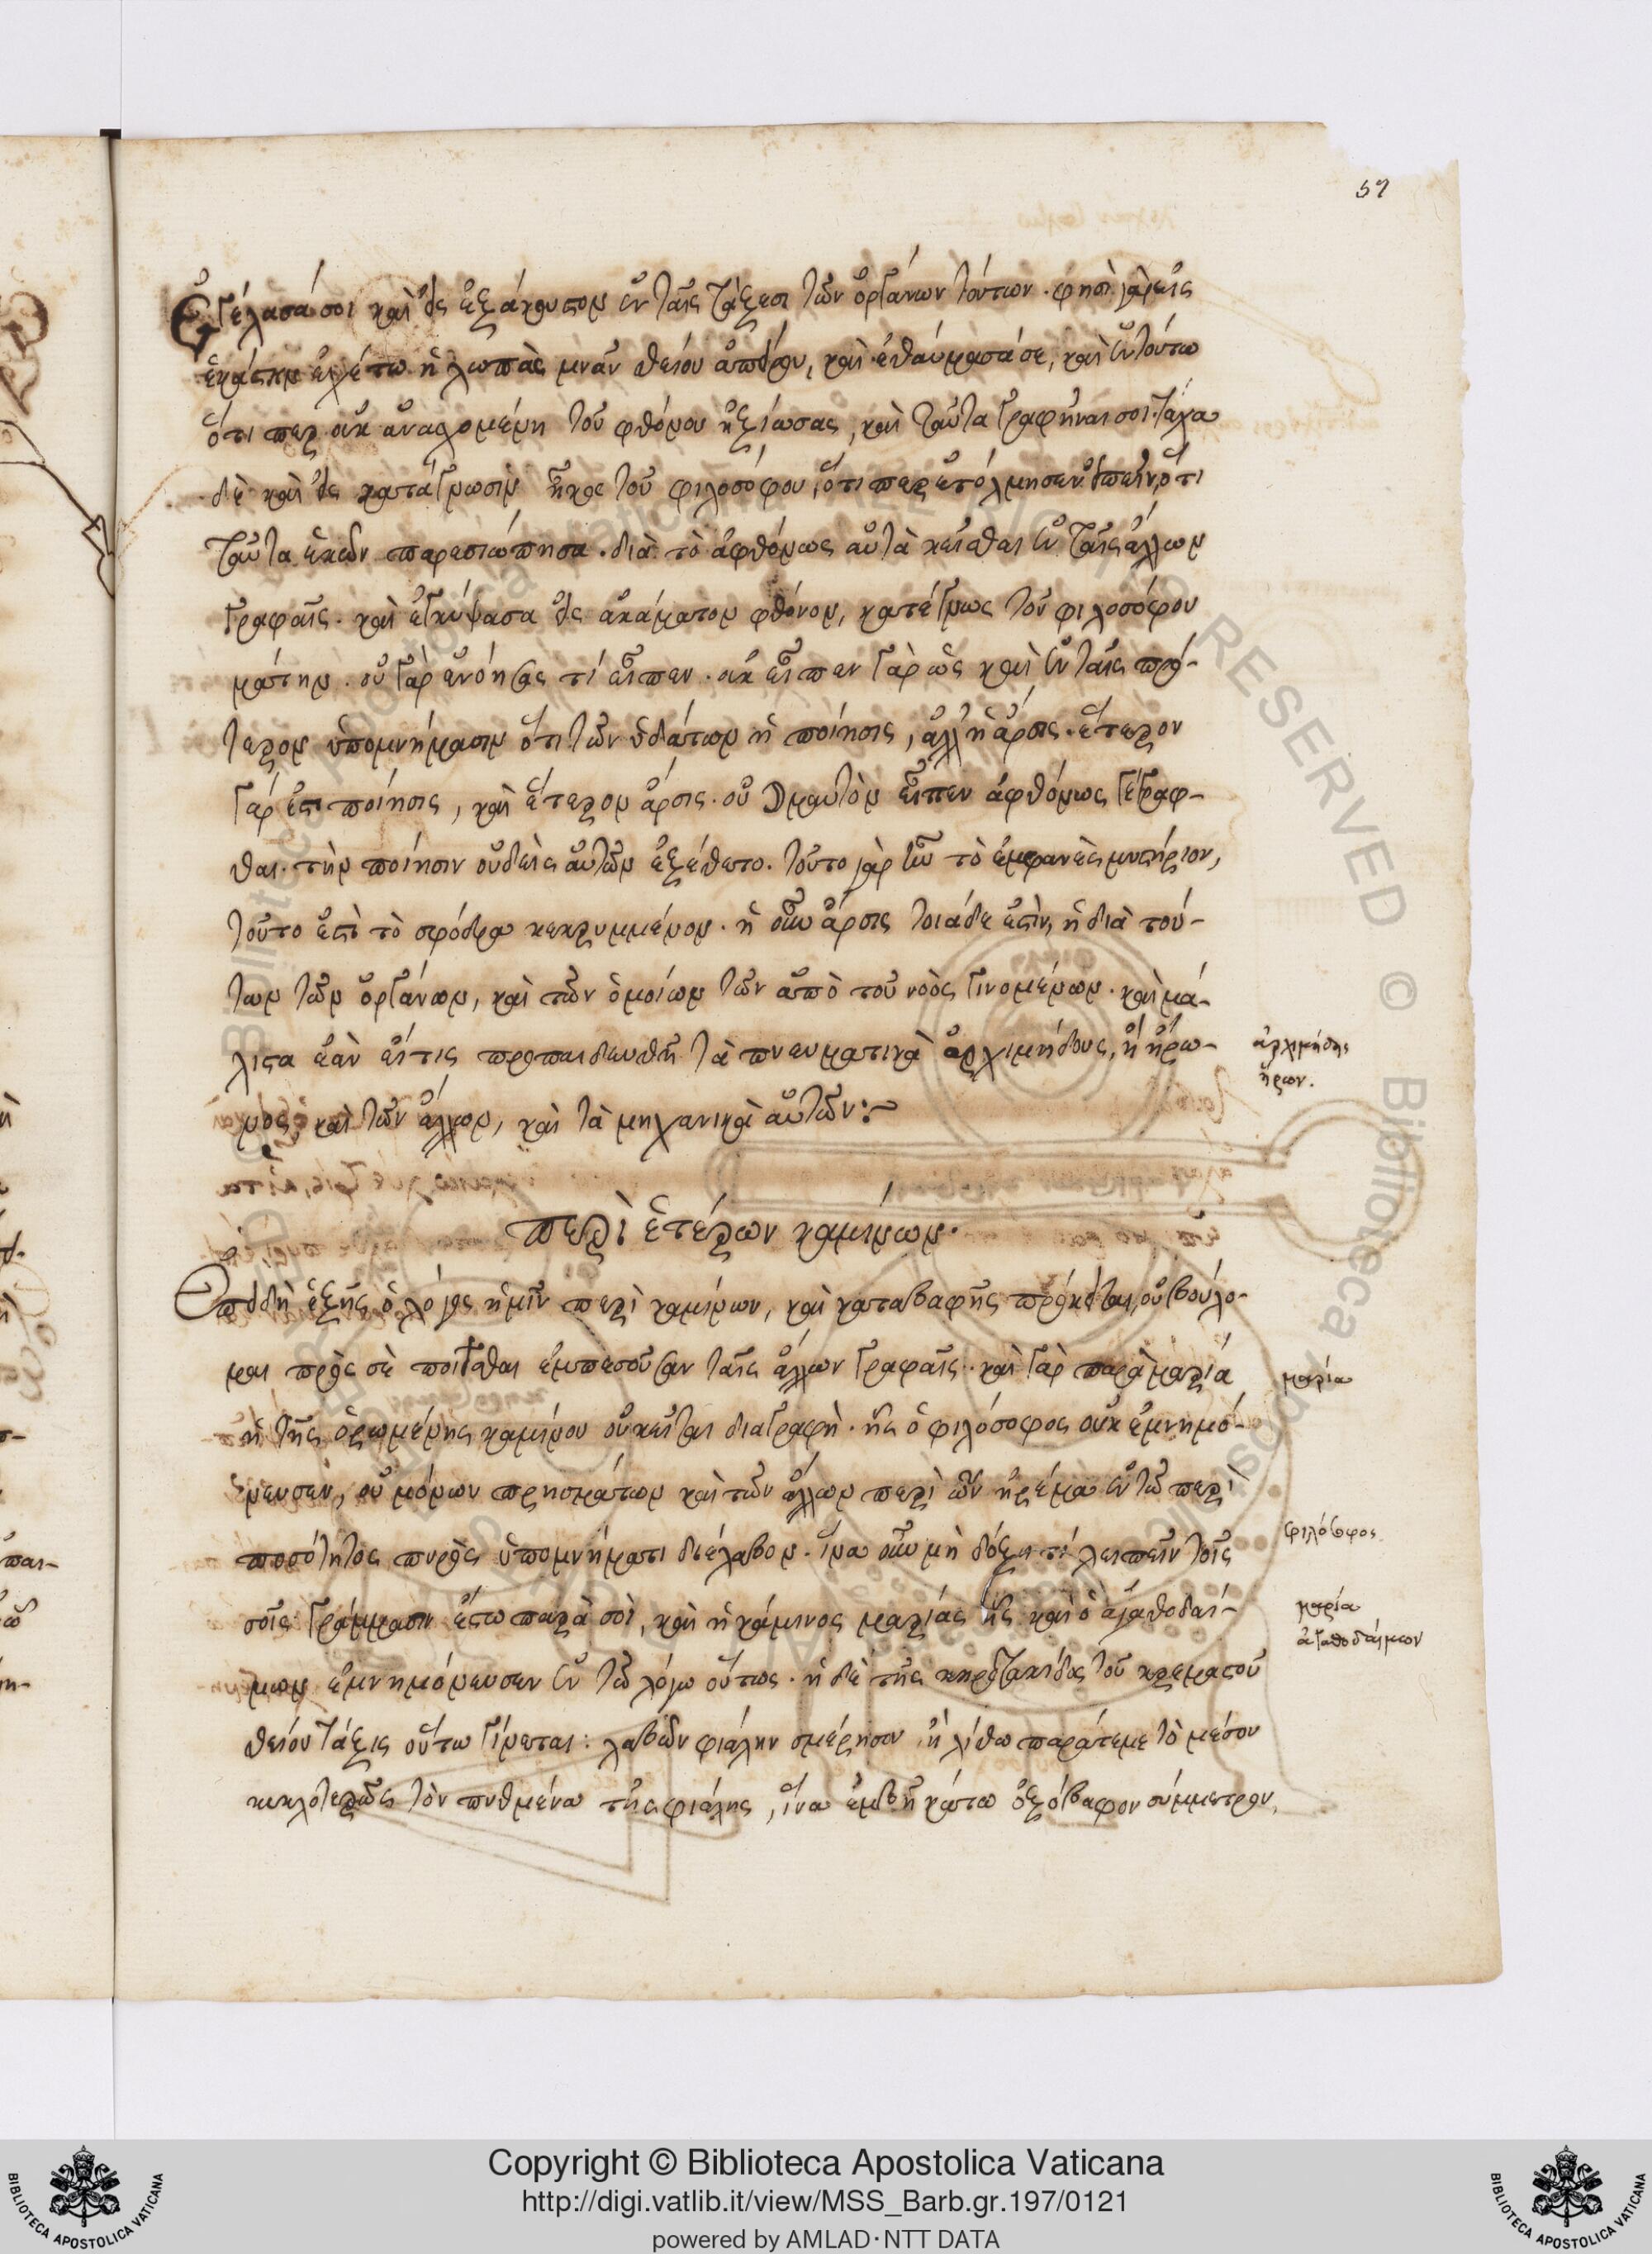 57
Ἐγέλασά σοι καὶ εἰς ἐξάκουστον ἐν ταῖς τάξεσι τῶν ὀργάνων τούτων. φησὶ γὰρ εἰς
ἑκάστην ἐχέτω ἡ λωπὰς μνᾶν θείου ἀπύρου, καὶ ἐθαύμασά σε, καὶ ἐν τούτω
ὅτι περ οὐκ ἀνασχομένη τοῦ φθόνου ἠξίωσας, καὶ ταῦτα γραφῆναι σοι. τάχα
δὲ καὶ εἰς κατάγνωσιν ἧκες τοῦ φιλοσόφου, ὅτι περ ἐτόλμησεν εἰπεῖν, ὅτι
ταῦτα ἑκὼν παρεσιώπησα. διὰ τὸ ἀφθόνως αὐτὰ κεῖσθαι ἐν ταῖς ἄλλων
γραφαῖς. καὶ ἐγκύψασα εἰς ἀκάματον φθόνον, κατέγνως τοῦ φιλοσόφου
μάτην. οὐ γὰρ ἐνόησας τί εἶπεν. οὐκ εἶπεν γὰρ ὡς καὶ ἐν ταῖς πρό-
τερον ὑπομνήμασιν ὅτι τῶν ὑδάτων ἡ ποίησις, ἀλλ' ἡ ἄρσις. ἕτερον
γάρ ἐστι ποίησις, καὶ ἕτερον ἄρσις. οὐ ἐμαυτὸν εἶπεν ἀφθόνως γεγράφ-
θαι. τὴν ποίησιν οὐδεὶς αὐτῶν ἐξέθετο. τοῦτο γὰρ ἦν τὸ ἐμφανὲς μυστήριον,
τοῦτο ἐστὶ τὸ σφόδρα κεκρυμμένον. ἡ οὖν ἄρσις τοιάδε ἐστὶν, ἡ διὰ τού-
των τῶν ὀργάνων, καὶ τῶν ὁμοίων τῶν ἀπὸ τοῦ νοὸς γινομένων. καὶ μά-
λιστα ἐὰν εἴ τις προπαιδευθῆ τὰ πνευματικὰ ἀρχιμήδους, ἢ ἥρω-
νος, καὶ τῶν ἄλλων, καὶ τὰ μηχανικὰ αὐτῶν:~
ἀρχιμήδης
ἥρων.
περὶ ἑτέρων καμίνων.
Ἐπειδὴ ἑξῆς ὁ λόγος ἡμῖν περὶ καμίνων, καὶ καταβαφῆς πρόκειται, οὐ βούλο-
μαι πρὸς σὲ ποιεῖσθαι ἐμπεσοῦσαν ταῖς ἄλλων γραφαῖς. καὶ γὰρ παρὰ μαρία
ἡ τῆς ὁρωμένης καμίνου οὐ κεῖται διαγραφὴ. ἧς ὁ φιλόσοφος οὐκ ἐμνημό-
νευσεν, οὐ μόνων πρησμάτων καὶ τῶν ἄλλων περὶ ὧν ἠρέμα ἐν τῶ περὶ
ποσότητος πυρὸς ὑπομνήματι διέλαβον. ἵνα οὖν μὴ δόξη τί λειπεῖν τοῖς
σοῖς γράμμασιν ἔστω παρὰ σοὶ, καὶ ἡ κάμινος μαρίας ἧς καὶ ὁ ἀγαθοδαί-
μων ἐμνημόνευσεν ἐν τῶ λόγω οὕτως. ἡ δὲ τῆς κηροτακίδος τοῦ κρεμαστοῦ
θείου τάξις οὕτω γίνεται: λαβὼν φιάλην σμέρησον, ἢ λίθω παράτεμε τὸ μέσον
κυκλοτερῶς τὸν πυθμένα τῆς φιάλης, ἵνα ἐμβῆ κάτω ὀξόβαφον σύμμετρον,
μαρία
φιλόσοφος
μαρία
ἀγαθοδαίμων
Copyright © Biblioteca Apostolica Vaticana
http://digi.vatlib.it/view/MSS_Barb.gr.197/0121
powered by AMLAD·NTT DATA
BIBLIOTECA APOSTOLICA VATICANA
BIBLIOTECA APOSTOLICA VATICANA